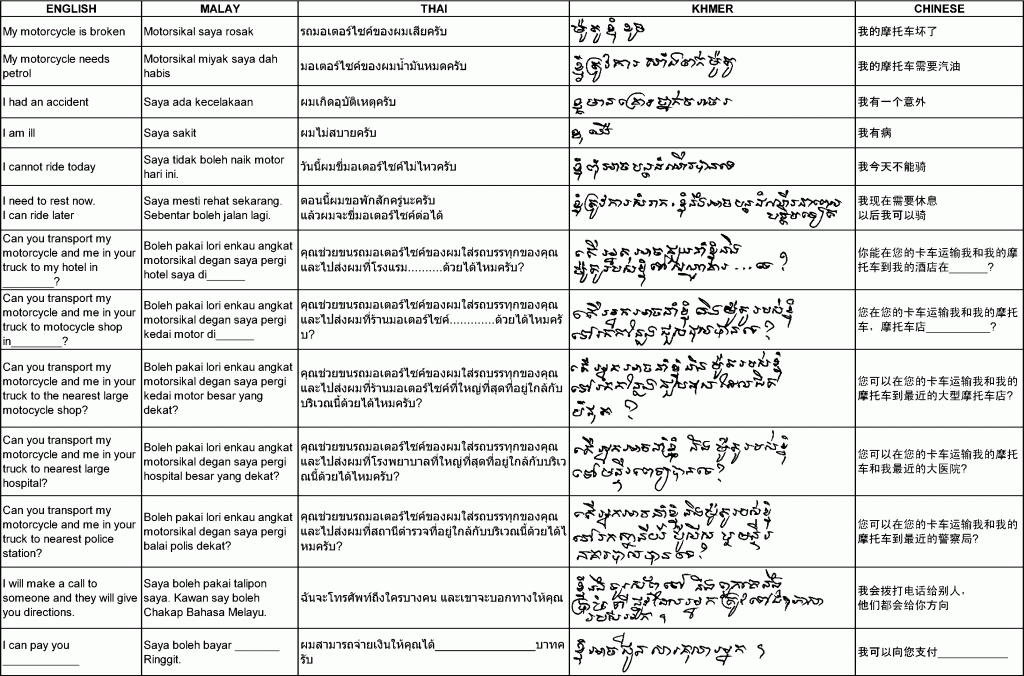 ENGLISH
MALAY
THAI
KHMER
CHINESE
My motorcycle is broken
Motorsikal saya rosak
รถมอเตอร์ไซค์ของผมเสียครับ
ម៉ូតូ ខ្ញុំ ខូច
我的摩托车坏了
My motorcycle needs
petrol
Motorsikal miyak saya dah
habis
มอเตอร์ไซค์ของผมน้ำมันหมดครับ
ខ្ញុំត្រូវការ សាំងចាក់ម៉ូតូ
我的摩托车需要汽油
I had an accident
Saya ada kecelakaan
ผมเกิดอุบัติเหตุครับ
ខ្ញុំមានគ្រោះថ្នាក់ចរាចរ
我有一个意外
I am ill
Saya sakit
ผมไม่สบายครับ
ខ្ញុំ ឈឺ
我有病
I cannot ride today
Saya tidak boleh naik motor
hari ini.
วันนี้ผมขี่มอเตอร์ไซค์ไม่ไหวครับ
ខ្ញុំពុំអាចបន្តដំណើរបានទេ
我今天不能骑
I need to rest now.
I can ride later
Saya mesti rehat sekarang.
Sebentar boleh jalan lagi.
ตอนนี้ผมขอพักสักครู่นะครับ
แล้วผมจะขี่มอเตอร์ไซค์ต่อได้
我现在需要休息
以后我可以骑
Can you transport my
motorcycle and me in your
truck to my hotel in
_________?
Boleh pakai lori enkau angkat
motorsikal degan saya pergi
hotel saya di______
คุณช่วยขนรถมอเตอร์ไซค์ของผมใส่รถบรรทุกของคุณ
และไปส่งผมที่โรงแรม..........ด้วยได้ไหมครับ?
你能在您的卡车运输我和我的摩
托车到我的酒店在______?
Can you transport my
motorcycle and me in your
truck to motocycle shop
in_________?
Boleh pakai lori enkau angkat
motorsikal degan saya pergi
kedai motor di______
คุณช่วยขนรถมอเตอร์ไซค์ของผมใส่รถบรรทุกของคุณ
และไปส่งผมที่ร้านมอเตอร์ไซค์.............ด้วยได้ไหมครั
บ?
您在您的卡车运输我和我的摩托
车，摩托车店__________?
Can you transport my
motorcycle and me in your
truck to the nearest large
motocycle shop?
Boleh pakai lori enkau angkat
motorsikal degan saya pergi
kedai motor besar yang
dekat?
คุณช่วยขนรถมอเตอร์ไซค์ของผมใส่รถบรรทุกของคุณ
และไปส่งผมที่ร้านมอเตอร์ไซค์ที่ใหญ่ที่สุดที่อยู่ใกล้กับ
บริเวณนี้ด้วยได้ไหมครับ?
您可以在您的卡车运输我和我的
摩托车到最近的大型摩托车店?
Can you transport my
motorcycle and me in your
truck to nearest large
hospital?
Boleh pakai lori enkau angkat
motorsikal degan saya pergi
hospital besar yang dekat?
คุณช่วยขนรถมอเตอร์ไซค์ของผมใส่รถบรรทุกของคุณ
และไปส่งผมที่โรงพยาบาลที่ใหญ่ที่สุดที่อยู่ใกล้กับบริเว
ณนี้ด้วยได้ไหมครับ?
您可以在您的卡车运输我的摩托
车和我最近的大医院?
Can you transport my
motorcycle and me in your
truck to nearest police
station?
Boleh pakai lori enkau angkat
motorsikal degan saya pergi
balai polis dekat?
คุณช่วยขนรถมอเตอร์ไซค์ของผมใส่รถบรรทุกของคุณ
และไปส่งผมที่สถานีตำรวจที่อยู่ใกล้กับบริเวณนี้ด้วยได้ไ
หมครับ?
您可以在您的卡车运输我和我的
摩托车到最近的警察局?
I will make a call to
someone and they will give
you directions.
Saya boleh pakai talipon
saya. Kawan say boleh
Chakap Bahasa Melayu.
ฉันจะโทรศัพท์ถึงใครบางคน และเขาจะบอกทางให้คุณ
我会拨打电话给别人，
他们都会给你方向
I can pay you
____________
Saya boleh bayar _______
Ringgit.
ผมสามารถจ่ายเงินให้คุณได้________________บาทค
รับ
我可以向您支付___________